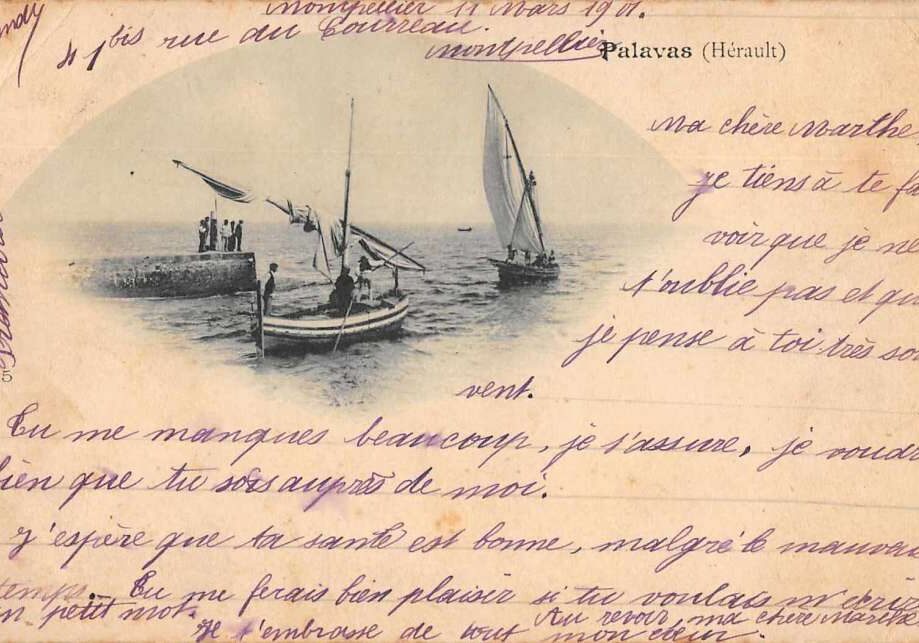 Montpellier 11 Mars 1901.
41 bis rue du Courreau.
Montpellier
Palavas (Hérault)
Ma chère Marthe,
je tiens à te fa
voir que je ne
t'oublie pas et qu
je pense à toi très sou
vent.
Tu me manques beaucoup, je t'assure, je voudr
ien que tu sois auprès de moi.
J'espère que ta santé est bonne, malgré le mauvai
temps. Tu me ferais bien plaisir si tu voulais m'écrir
n petit mot.
Au revoir, ma chère Marthe
Je t'embrasse de tout mon cœur.